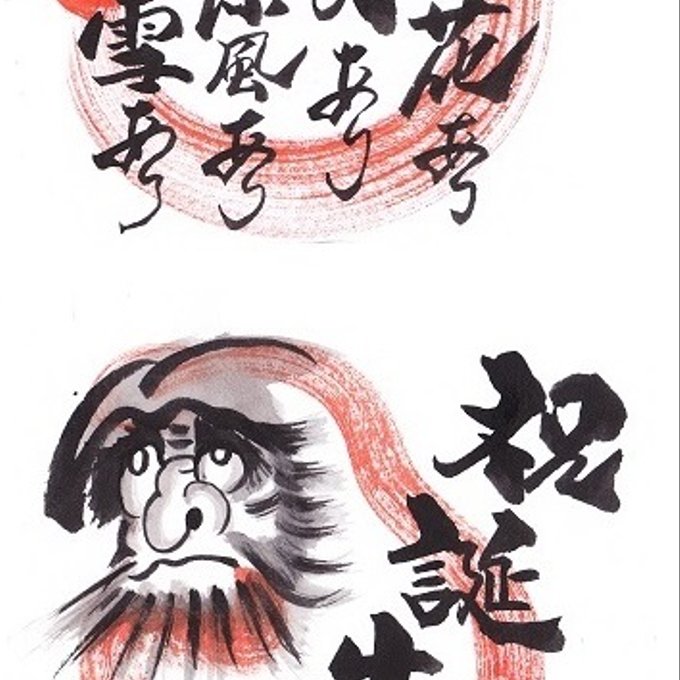 花あり
あり
風あり
雪あり
祝誕生